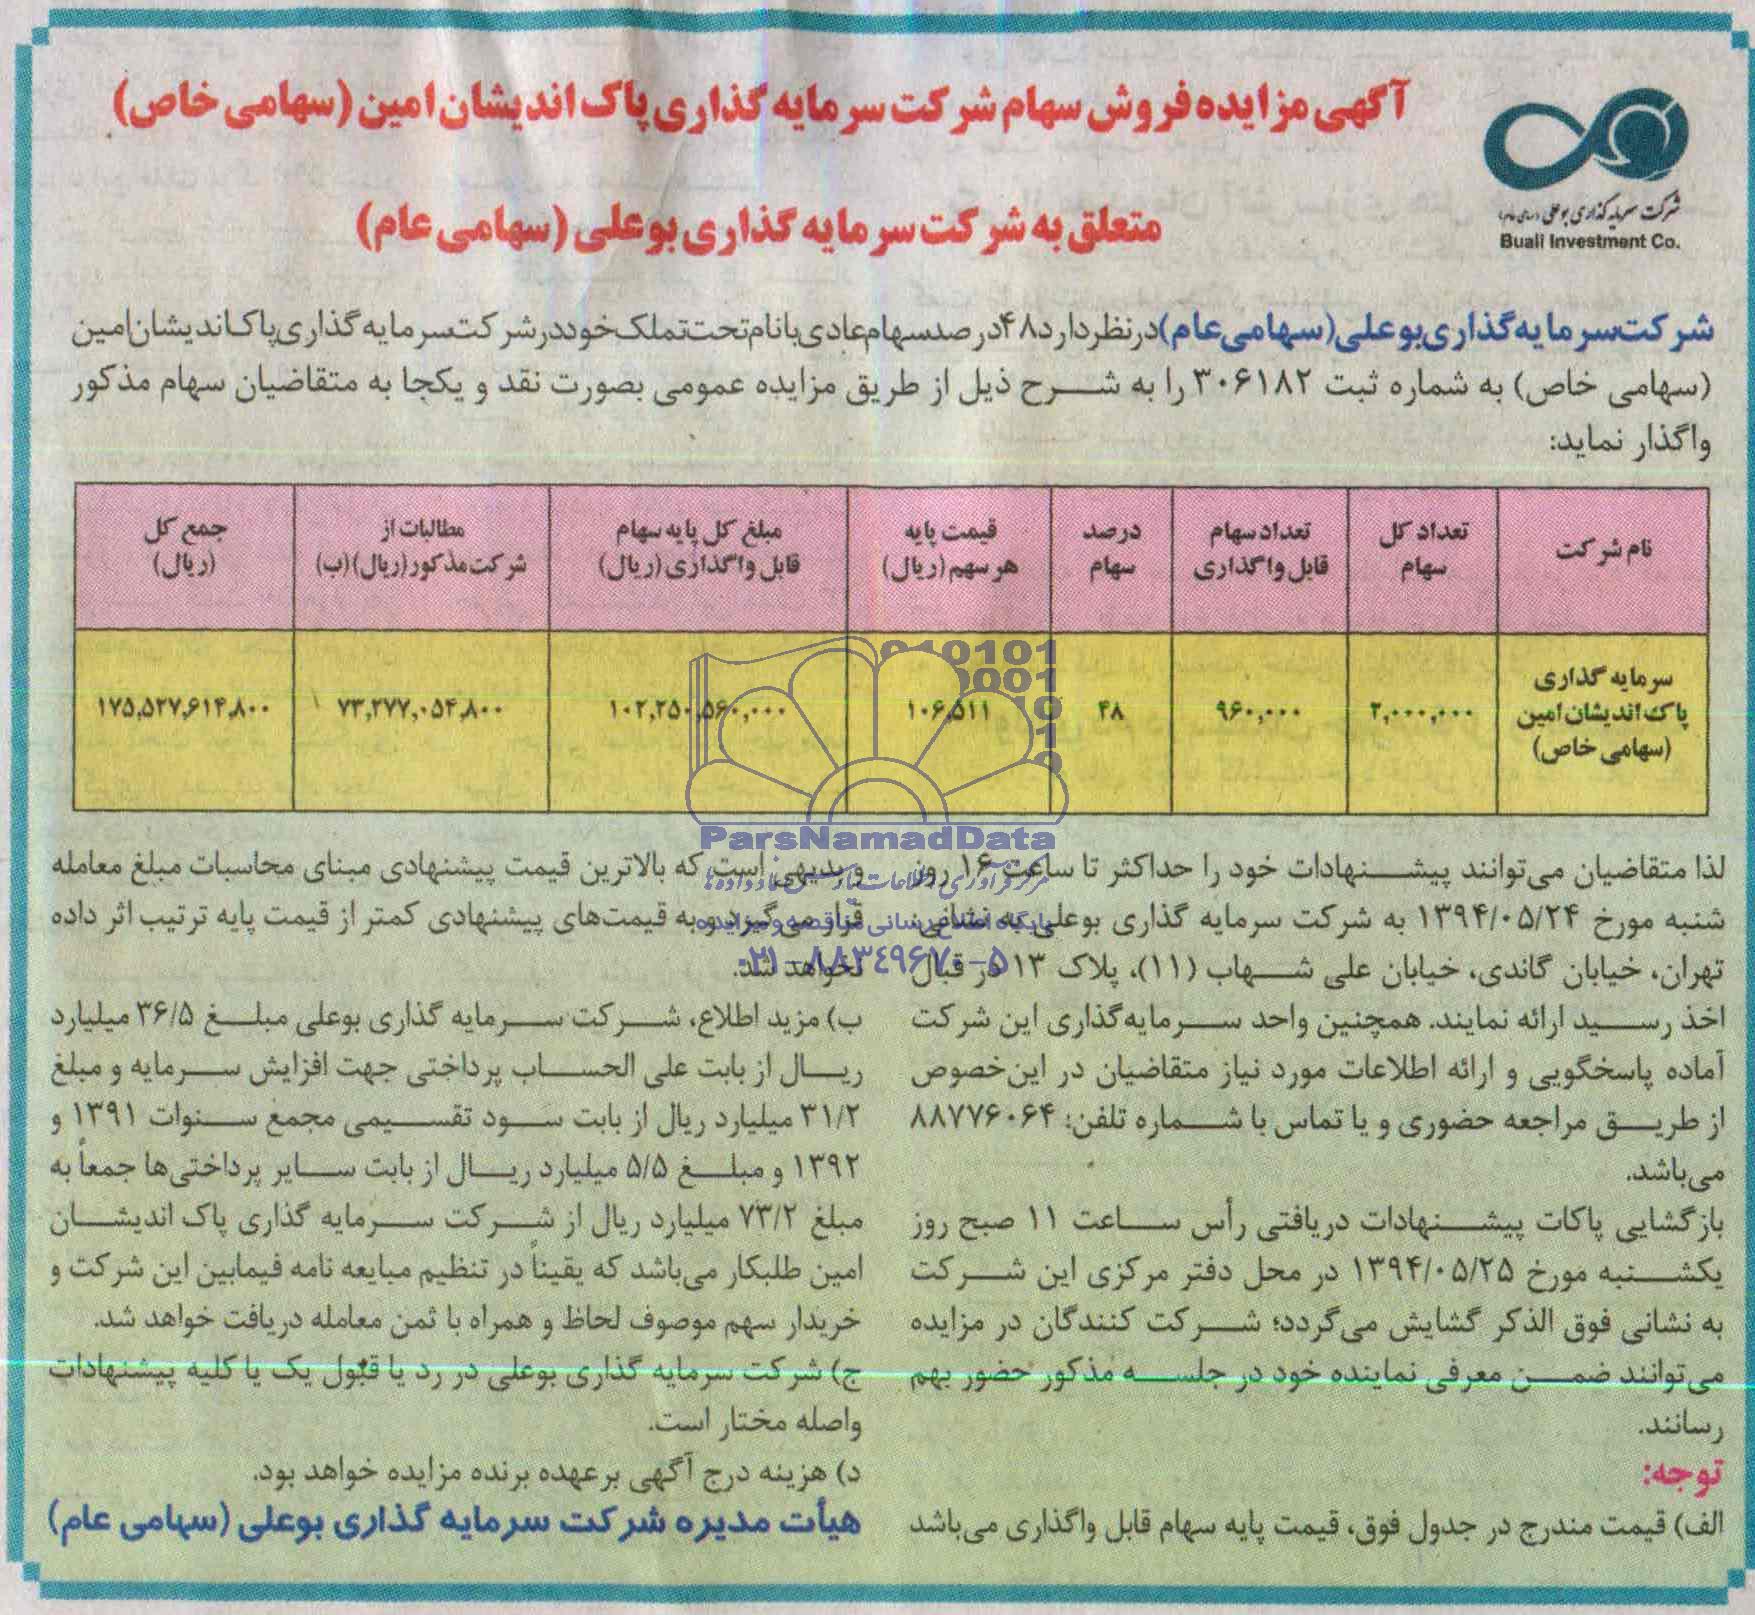 آگهی مزایده فروش سهام شرکت سرمایه گذاری پاک اندیشان امین (سهامی خاص)
متعلق به شرکت سرمایه گذاری بوعلی (سهامی عام)
شرکت سرمایه گذاری بوعلی (سهامی عام)
Buali Investment Co.
شرکت سرمایه گذاری بوعلی (سهامی عام) در نظر دارد ۴۸ درصد سهام عادی با نام تحت تملک خود در شرکت سرمایه گذاری پاک اندیشان امین
(سهامی خاص) به شماره ثبت ۳۰۶۱۸۲ را به شرح ذیل از طریق مزایده عمومی بصورت نقد و یکجا به متقاضیان سهام مذکور
واگذار نماید:
نام شرکت
تعداد کل
سهام
تعداد سهام
قابل واگذاری
درصد
سهام
قیمت پایه
هر سهم (ریال)
مبلغ کل پایه سهام
قابل واگذاری (ریال)
مطالبات از
شرکت مذکور (ریال) (ب)
جمع کل
(ریال)
سرمایه گذاری
پاک اندیشان امین
(سهامی خاص)
۲,۰۰۰,۰۰۰
۹۶۰,۰۰۰
۴۸
۱۰۶,۵۱۱
۱۰۲,۲۵۰,۵۶۰,۰۰۰
۷۳,۲۷۷,۰۵۴,۸۰۰
۱۷۵,۵۲۷,۶۱۴,۸۰۰
ParsNamadData
پایگاه اطلاع رسانی مناقصه و مزایده
۰۲۱-۸۸۳۴۹۶۷۰-۵
لذا متقاضیان می‌توانند پیشنهادات خود را حداکثر تا ساعت ۱۶ روز
شنبه مورخ ۱۳۹۴/۰۵/۲۴ به شرکت سرمایه گذاری بوعلی به نشانی:
تهران، خیابان گاندی، خیابان علی شهاب (۱۱)، پلاک ۱۳ در قبال
اخذ رسید ارائه نمایند. همچنین واحد سرمایه‌گذاری این شرکت
آماده پاسخگویی و ارائه اطلاعات مورد نیاز متقاضیان در این‌خصوص
از طریق مراجعه حضوری و یا تماس با شماره تلفن: ۸۸۷۷۶۰۶۴
می‌باشد.
بازگشایی پاکات پیشنهادات دریافتی رأس ساعت ۱۱ صبح روز
یکشنبه مورخ ۱۳۹۴/۰۵/۲۵ در محل دفتر مرکزی این شرکت
به نشانی فوق الذکر گشایش می‌گردد؛ شرکت کنندگان در مزایده
می‌توانند ضمن معرفی نماینده خود در جلسه مذکور حضور بهم
رسانند.
توجه:
الف) قیمت مندرج در جدول فوق، قیمت پایه سهام قابل واگذاری می‌باشد
و بدیهی است که بالاترین قیمت پیشنهادی مبنای محاسبات مبلغ معامله
قرار می‌گیرد و به قیمت‌های پیشنهادی کمتر از قیمت پایه ترتیب اثر داده
نخواهد شد.
ب) مزید اطلاع، شرکت سرمایه گذاری بوعلی مبلغ ۳۶/۵ میلیارد
ریال از بابت علی الحساب پرداختی جهت افزایش سرمایه و مبلغ
۳۱/۲ میلیارد ریال از بابت سود تقسیمی مجمع سنوات ۱۳۹۱ و
۱۳۹۲ و مبلغ ۵/۵ میلیارد ریال از بابت سایر پرداختی‌ها جمعاً به
مبلغ ۷۳/۲ میلیارد ریال از شرکت سرمایه گذاری پاک اندیشان
امین طلبکار می‌باشد که یقیناً در تنظیم مبایعه نامه فیمابین این شرکت و
خریدار سهم موصوف لحاظ و همراه با ثمن معامله دریافت خواهد شد.
ج) شرکت سرمایه گذاری بوعلی در رد یا قبول یک یا کلیه پیشنهادات
واصله مختار است.
د) هزینه درج آگهی برعهده برنده مزایده خواهد بود.
هیأت مدیره شرکت سرمایه گذاری بوعلی (سهامی عام)